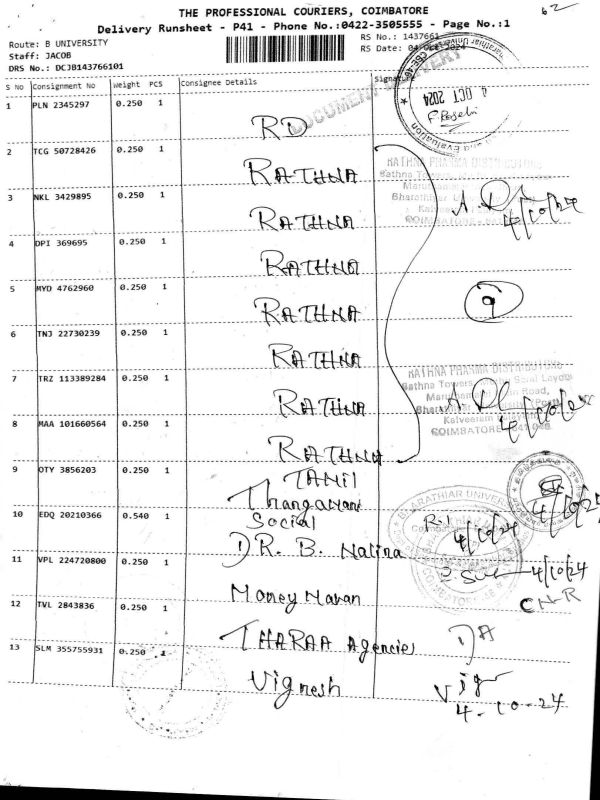 THE PROFESSIONAL COURIERS, COIMBATORE
62
Delivery Runsheet - P41 - Phone No.:0422-3505555 - Page No.:1
Route: B UNIVERSITY
Staff: JACOB
DRS No.: DCJB143766101
RS No.: 1437661
RS Date: 04 Oct 2024
S No Consignment No Weight PCS Consignee Details Signature
DOCUMENT DELIVERY
OCT 2024
1 PLN 2345297 0.250 1 RD
2 TCG 50728426 0.250 1 RATHNA
RATHNA PHARMA DISTRIBUTORS
Rathna Towers,
Bharathiar
COIMBATORE
3 NKL 3429895 0.250 1 RATHNA
4/10/24
4 DPI 369695 0.250 1 RATHNA
5 MYD 4762960 0.250 1 RATHNA
9
6 TNJ 22730239 0.250 1 RATHNA
7 TRZ 113389284 0.250 1 RATHNA
RATHNA PHARMA DISTRIBUTORS
Rathna Towers, Layout
Road,
Kalveerampalayam
COIMBATORE
8 MAA 101660564 0.250 1 RATHNA
9 OTY 3856203 0.250 1 TAMIL
Thangamani
10 EDQ 20210366 0.540 1 Social
DR. B. Nalina
BHARATHIAR UNIVERSITY
4/10/24
11 VPL 224720800 0.250 1 Money Maran
4/10/24
CNR
12 TVL 2843836 0.250 1 THARAA Agencies
13 SLM 355755931 0.250 1 Vignesh
4-10-24